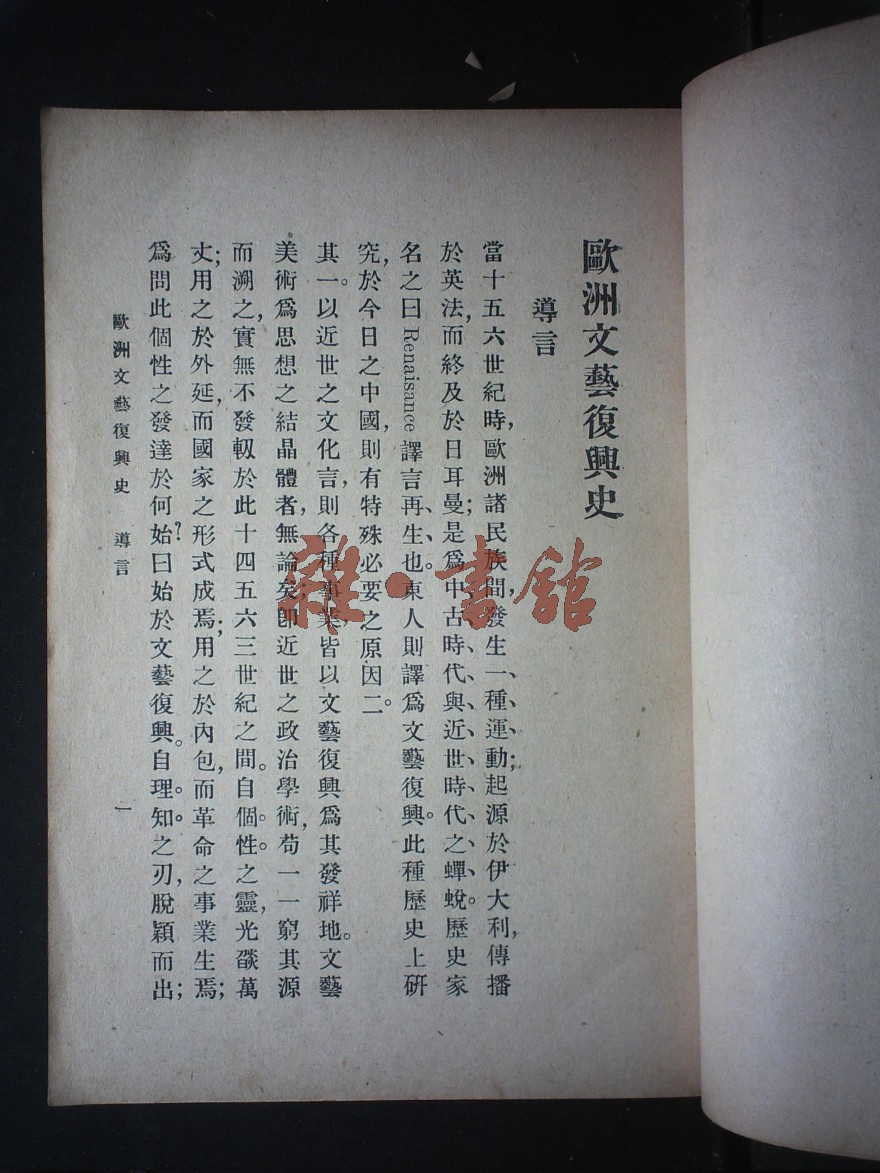 歐洲文藝復興史
導言
當十五六世紀時，歐洲諸民族間，發生一、種、運、動；起源於伊大利，傳播
於英法，而終及於日耳曼；是爲、中、古、時、代、與、近、世、時、代、之、蟬、蛻。歷史家
名之曰Renaisance譯言再、生、也。東人則譯爲文藝復興。此種歷史上研
究，於今日之中國，則有特殊必要之原因二。
其一。以近世之文化言，則各種事業，皆以文藝復興爲其發祥地。文藝
美術爲思想之結晶體者，無論矣；卽近世之政治學術，苟一一窮其源
而溯之，實無不發軔於此十四五六三世紀之間。自個。性。之靈，光燄萬
丈；用之於外延，而國家之形式成焉；用之於內包，而革命之事業生焉；
爲問此個性之發達於何始？曰始於文藝復興。自理。知。之刃，脫穎而出；
歐洲文藝復興史　導言
一
雜·書館